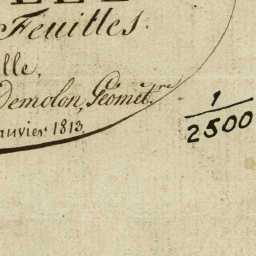 Feuilles.
lle,
Demolon, Géomèt.re
anvier 1813.
1
2500